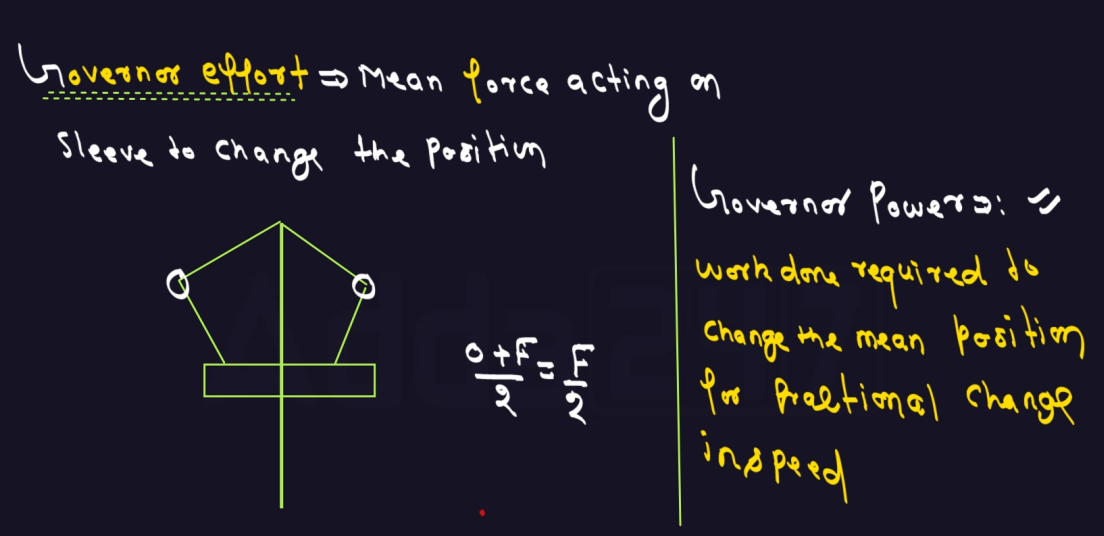 Governor effort ⇒ Mean force acting on
Sleeve to change the position
0 + F / 2 = F / 2
Governor Power ⇒: 〃
work done required to
change the mean position
for fractional change
in speed